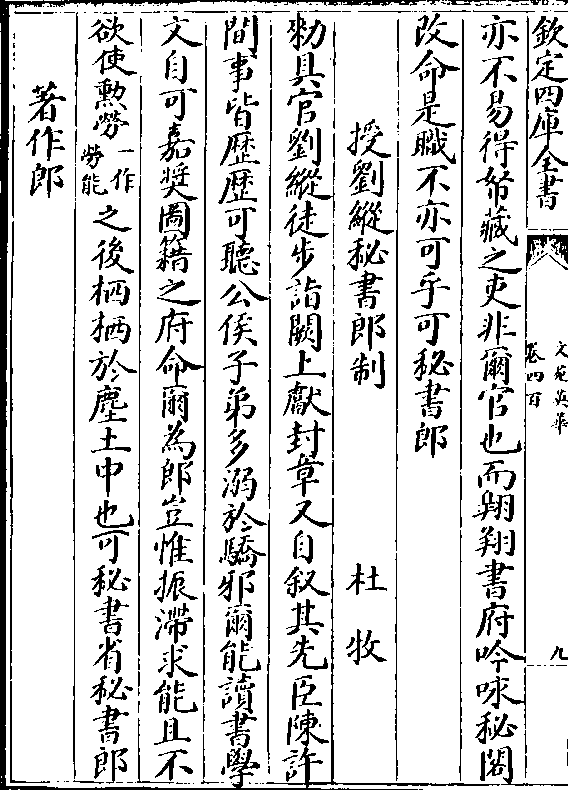 欽定四庫全書
文苑英華
卷四百
九
亦不易得帑藏之吏非爾官也而翺翔書府吟咏秘閣
改命是職不亦可乎可秘書郎
授劉縱秘書郎制
杜牧
勑具官劉縱徒步詣闕上獻封章又自叙其先臣陳許
間事皆歷歷可聽公侯子弟多溺於驕邪爾能讀書學
文自可嘉奬圖籍之府命爾為郎豈惟振滯求能且不
欲使勲勞一作勞能之後栖栖於塵土中也可秘書省秘書郎
著作郎